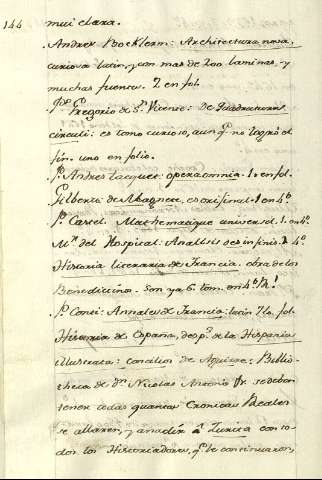 144
mui clara.
Andres Bocklern: Architectura nova,
curiosa latin, y con mas de 200 laminas, y
muchas fuentes. 2 en fol.
Gregorio de Sn. Vicente: De Quadraturis
circuli: es tomo curioso, aunq. no logró el
fin. uno en folio.
P. Andres Tacquet: opera omnia. 1. en fol.
Gilberto de Magnete, es original. 1 en 4º.
P. Castel. Mathematique universel. 1. en 4º.
Ms. del Hospital: Analisis des infinis. 1. 4º.
Historia literaria de Francia. obra de los
Benedictinos. Son ya 6. tom. en 4º
P. Annales de Francia: latin fol.
Historia de España, desps. de la Hispania
illustrata: concilios de Aguirre: Biblio-
theca de Dn. Nicolas Antonio se deban
tener todas quantas Cronicas Reales
se allaren, y anadir â Zurita con to-
dos los Historiadores, qe. le continuaron,